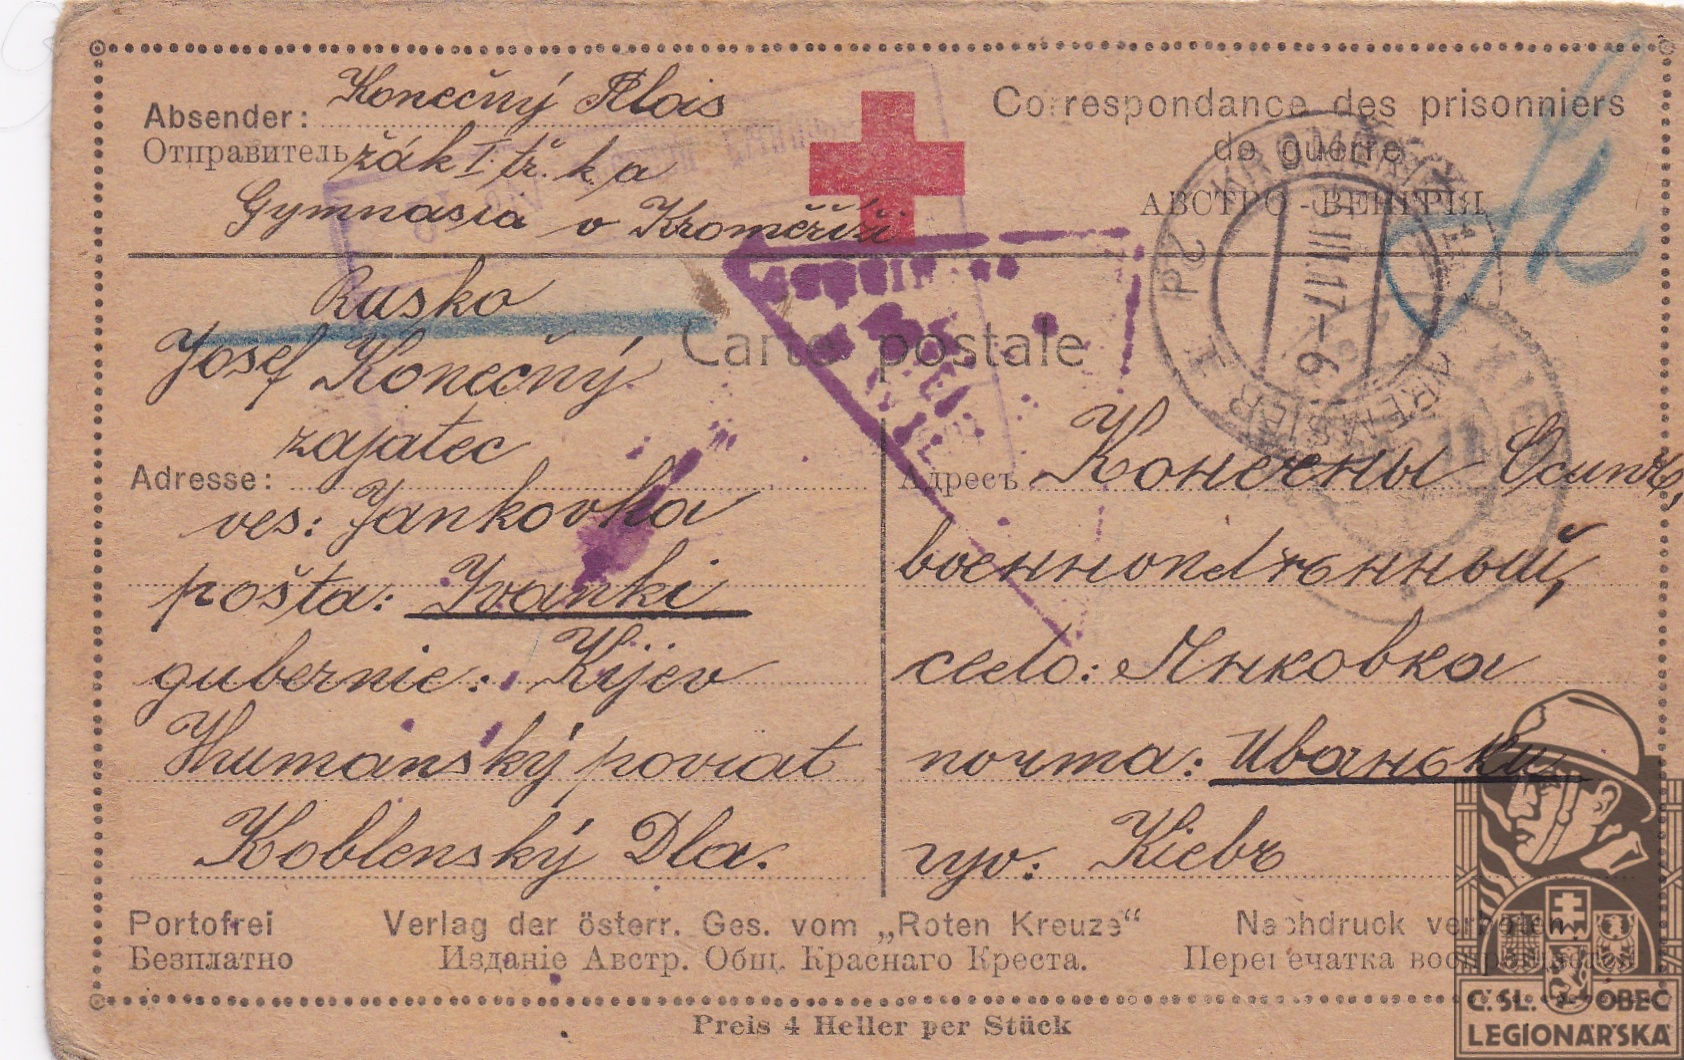 Absender: Konečný Alois
Отправитель žák I. tř. k. a
Gymnasia v Kroměříži
Correspondance des prisonniers
de guerre
АВСТРО-ВЕНГРІЯ
Carte postale
Rusko
Josef Konečný
zajatec
Adresse:
ves: Jankovka
pošta: Ivanki
gubernie: Kijev
Humanský poviat
Koblenský Dla.
Адресъ Конечны Осипъ,
военноплѣнный,
село: Янковка
почта: Иваньки
губ: Кіевъ
KROMĚŘÍŽ
III 17-6
KREMSIER
Portofrei Verlag der österr. Ges. vom „Roten Kreuze“ Nachdruck verboten
Безплатно Изданіе Австр. Общ. Краснаго Креста. Перепечатка воспрещается
Preis 4 Heller per Stück
Č. SL. OBEC
LEGIONÁŘSKÁ